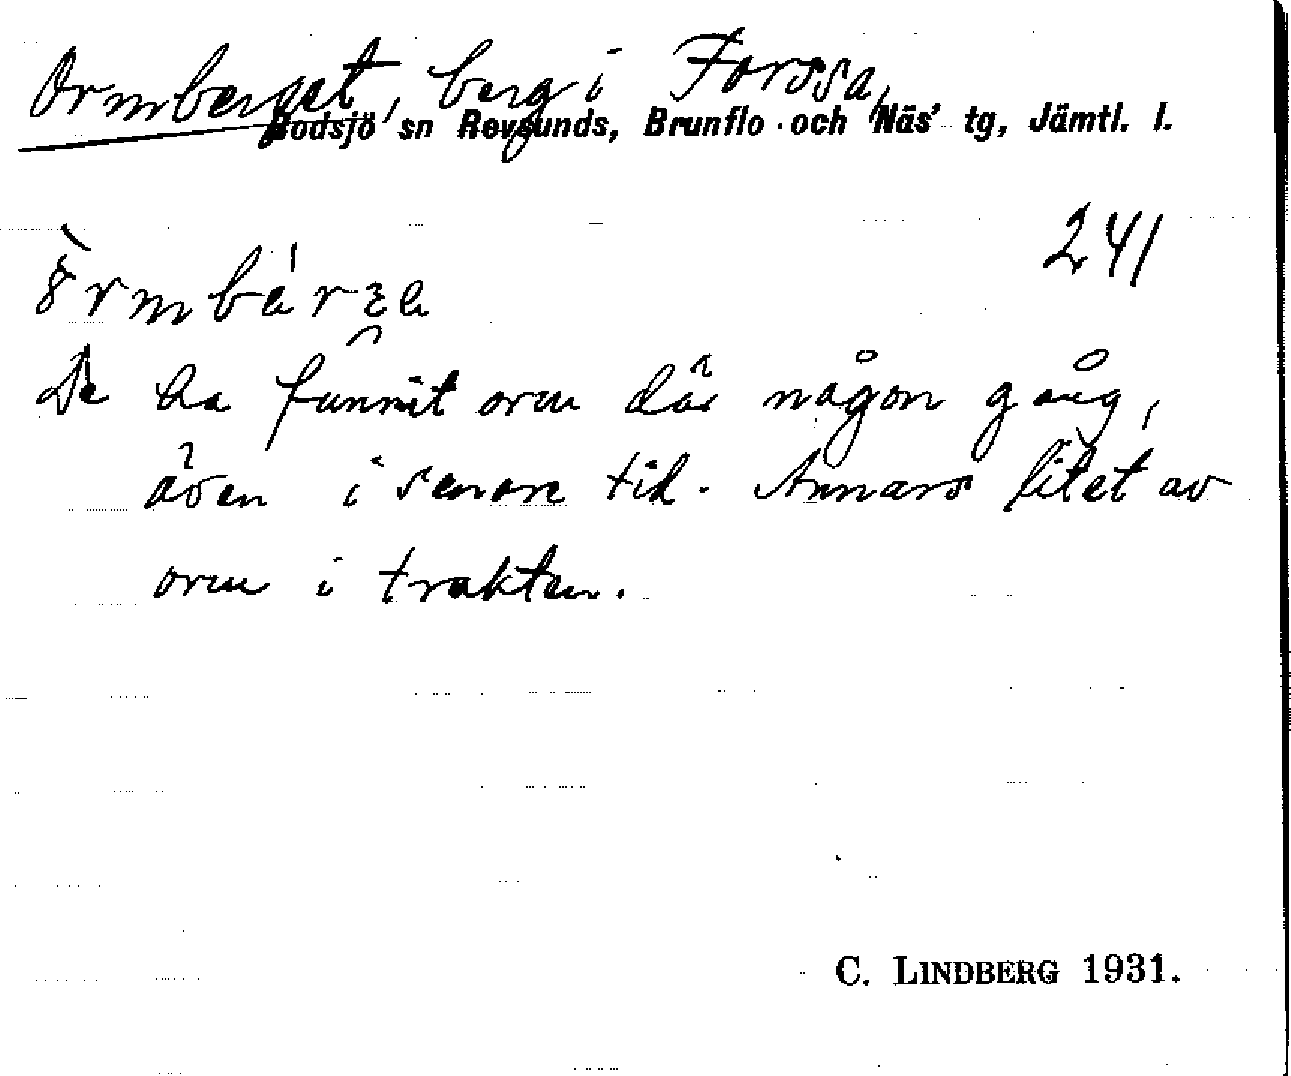 Ormberget, berg i Forssa,
Bodsjö sn Revsunds, Brunflo och Näs' tg, Jämtl. l.
241
De ha funnit orm där någon gång,
även i senare tid. Annars litet av
orm i trakten.
C. LINDBERG 1931.